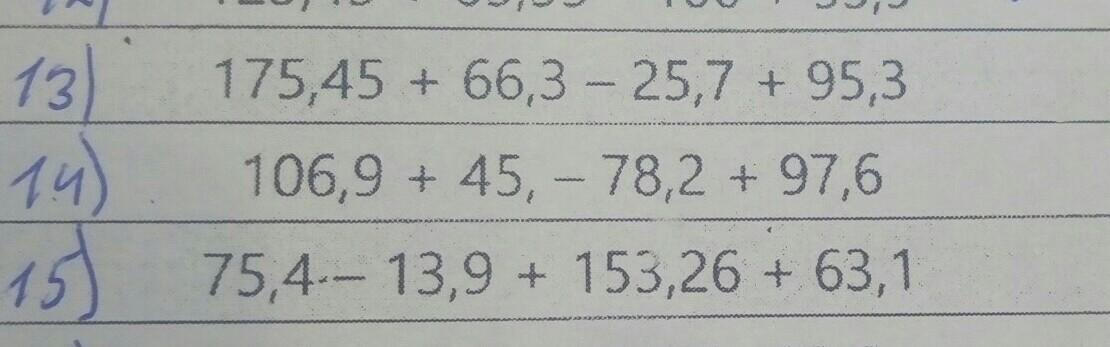 13) 175,45 + 66,3 – 25,7 + 95,3
14) 106,9 + 45, – 78,2 + 97,6
15) 75,4 – 13,9 + 153,26 + 63,1